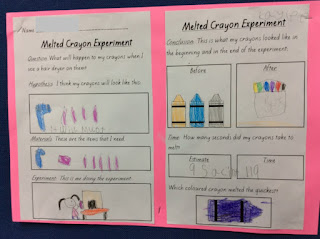 Name
Melted Crayon Experiment
Question: What will happy to my crayons when I
use a hair dryer on them?
Hypothesis: I think my crayons will look like this:
Materials: These are the items that I need
Experiment: This is me doing the experiment.
Melted Crayon Experiment
Conclusion: This is what my crayons looked like in
the beginning and in the end of the experiment:
Before
After
Time: How many seconds did my crayons take to
melt?
Estimate
Time
Which coloured crayon melted the quickest?